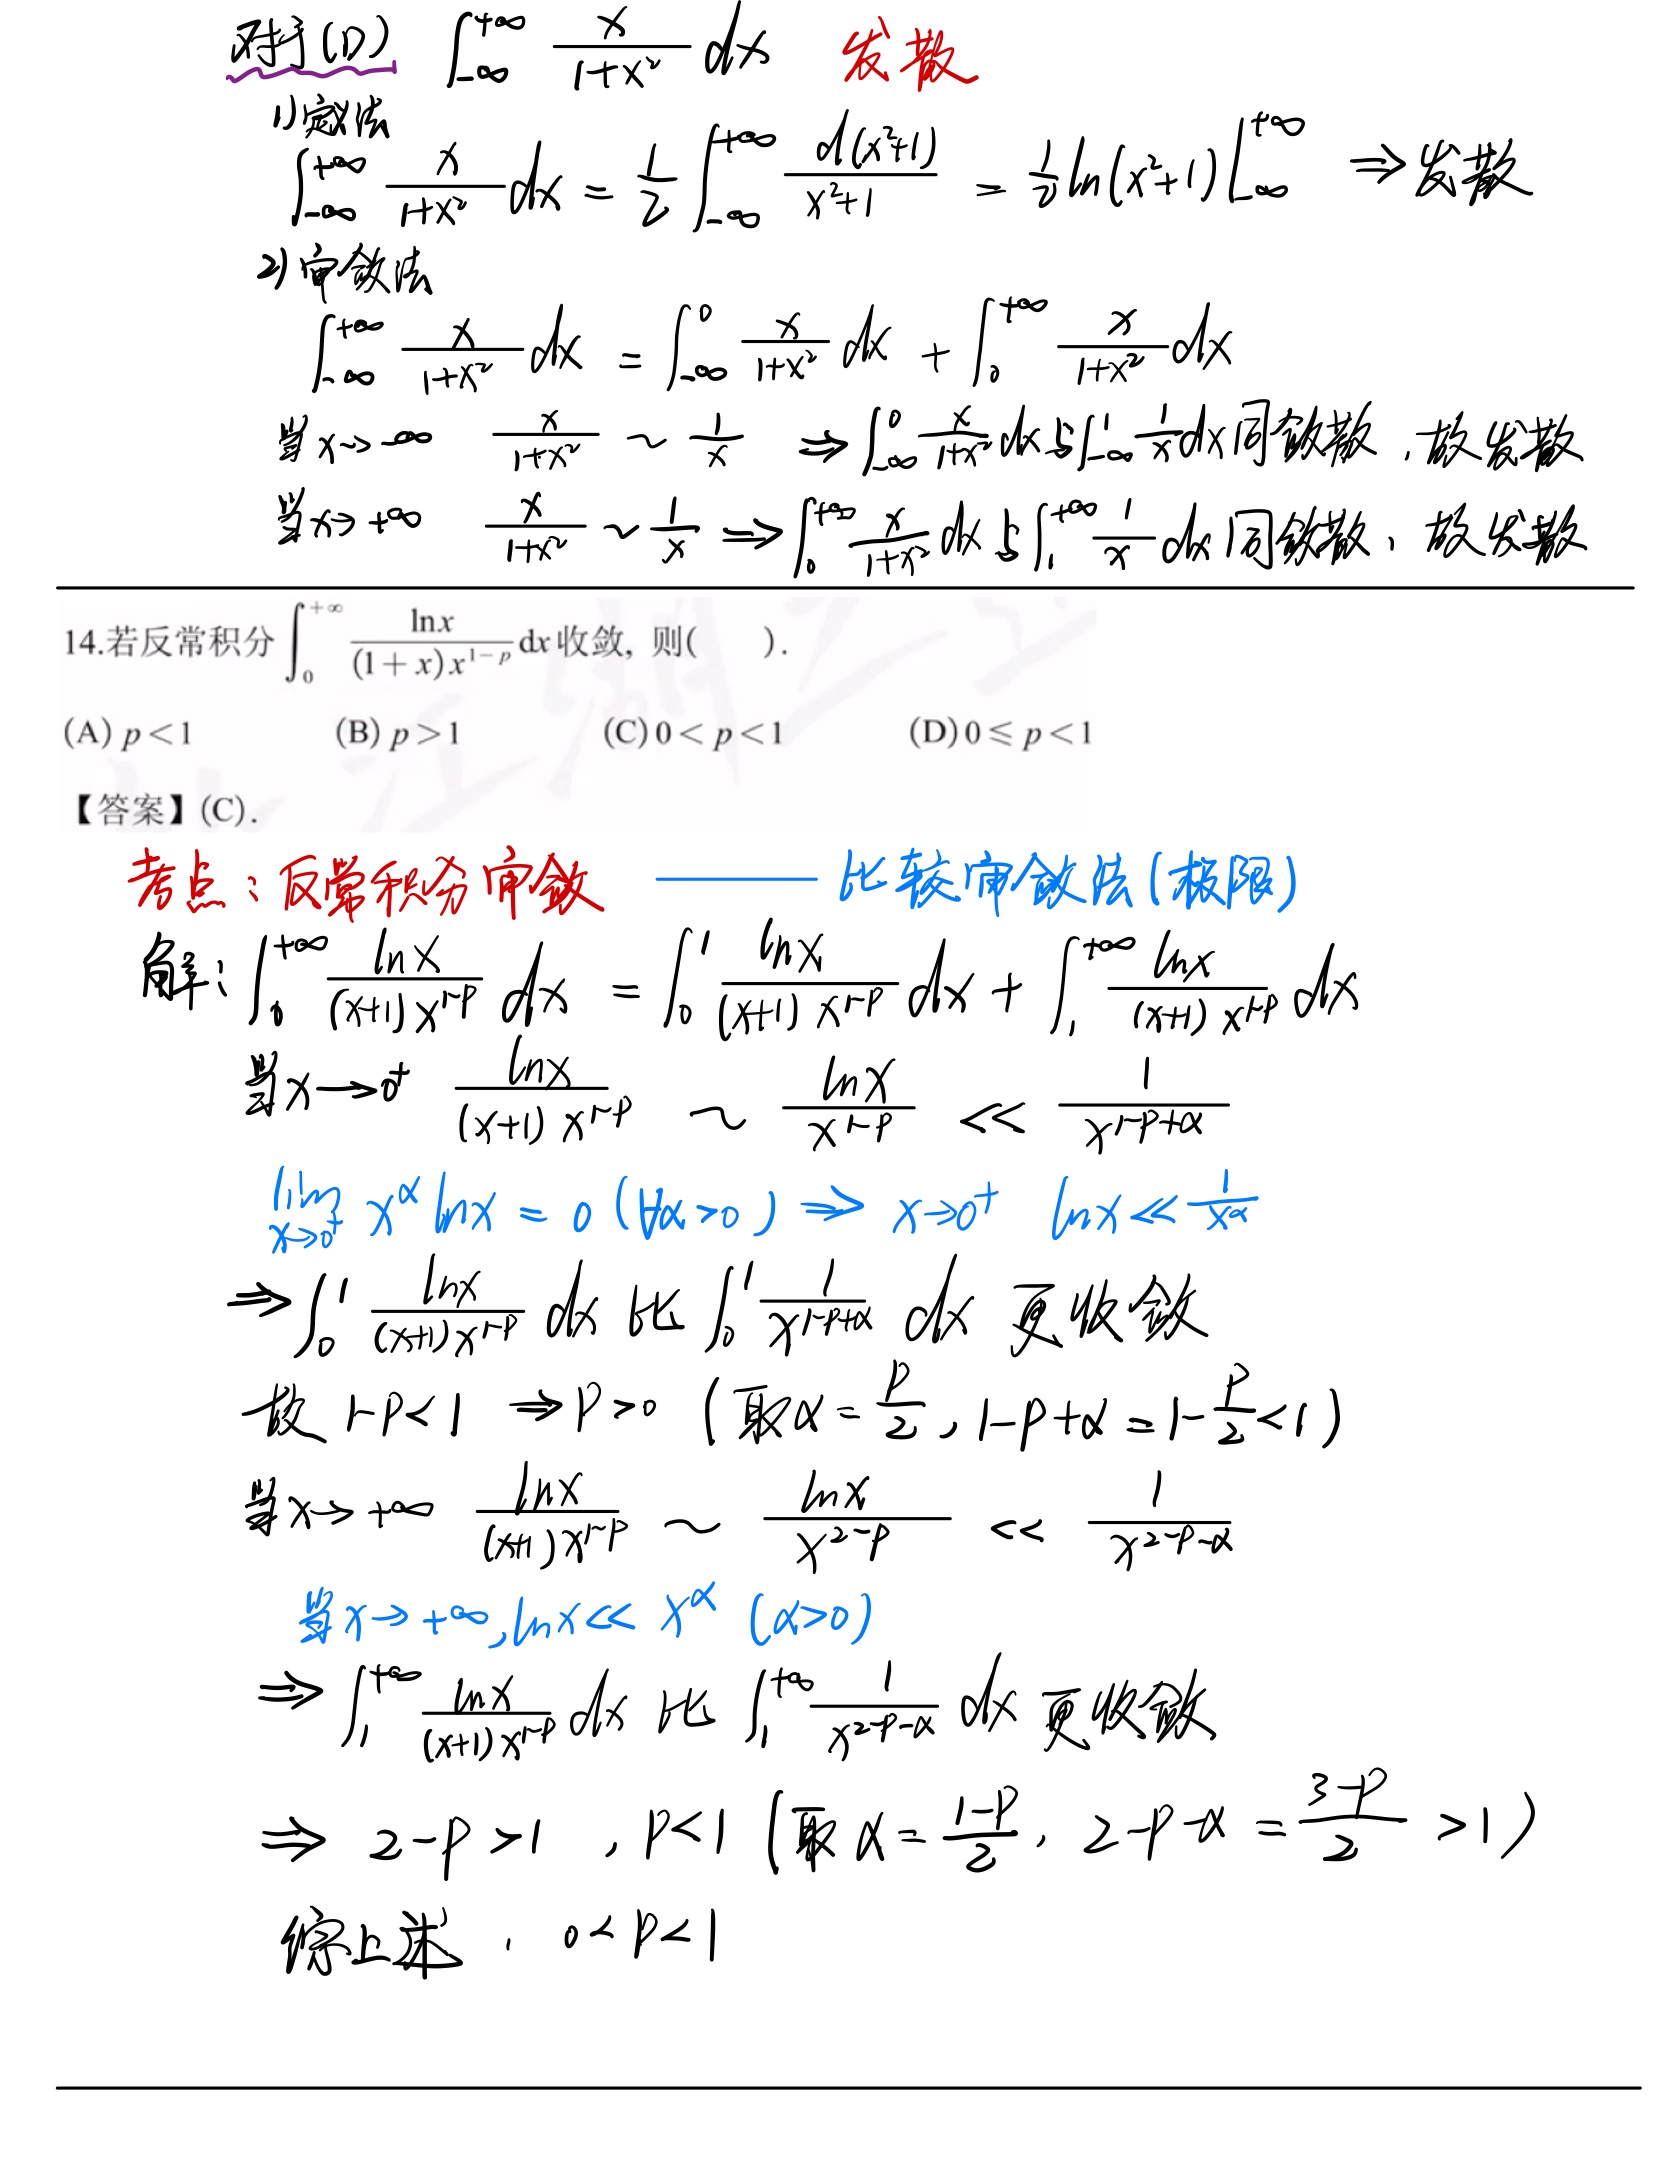 对于(D) ∫_{-∞}^{+∞} x/(1+x²) dx 发散
1)定义法
∫_{-∞}^{+∞} x/(1+x²) dx = 1/2 ∫_{-∞}^{+∞} d(x²+1)/(x²+1) = 1/2 ln(x²+1)|_{-∞}^{+∞} ⇒ 发散
2)审敛法
∫_{-∞}^{+∞} x/(1+x²) dx = ∫_{-∞}^{0} x/(1+x²) dx + ∫_{0}^{+∞} x/(1+x²) dx
当x→-∞ x/(1+x²) ~ 1/x ⇒ ∫_{-∞}^{0} x/(1+x²) dx与∫_{-∞}^{1} 1/x dx同敛散,故发散
当x→+∞ x/(1+x²) ~ 1/x ⇒ ∫_{0}^{+∞} x/(1+x²) dx与∫_{1}^{+∞} 1/x dx同敛散、故发散
14.若反常积分∫_{0}^{+∞} lnx/((1+x)x^{1-p}) dx收敛, 则( ).
(A) p<1 (B) p>1 (C) 0<p<1 (D) 0⩽p<1
【答案】(C).
考点:反常积分审敛 —— 比较审敛法(极限)
解:∫_{0}^{+∞} lnx/((x+1)x^{1-p}) dx = ∫_{0}^{1} lnx/((x+1)x^{1-p}) dx + ∫_{1}^{+∞} lnx/((x+1)x^{1-p}) dx
当x→0⁺ lnx/((x+1)x^{1-p}) ~ lnx/x^{1-p} << 1/x^{1-p+α}
lim_{x→0⁺} x^α lnx = 0 (∀α>0) ⇒ x→0⁺ lnx << 1/x^α
⇒ ∫_{0}^{1} lnx/((x+1)x^{1-p}) dx 比 ∫_{0}^{1} 1/x^{1-p+α} dx 更收敛
故 1-p<1 ⇒ p>0 (取α=p/2, 1-p+α=1-p/2<1)
当x→+∞ lnx/((x+1)x^{1-p}) ~ lnx/x^{2-p} << 1/x^{2-p-α}
当x→+∞, lnx << x^α (α>0)
⇒ ∫_{1}^{+∞} lnx/((x+1)x^{1-p}) dx 比 ∫_{1}^{+∞} 1/x^{2-p-α} dx 更收敛
⇒ 2-p>1 , p<1 (取α=(1-p)/2, 2-p-α=(3-p)/2>1)
综上述, 0<p<1